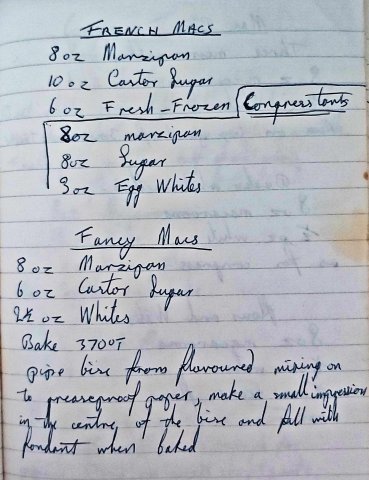 FRENCH MACS
8 oz Marzipan
10 oz Castor Sugar
6 oz Fresh-Frozen
Congress tarts
8oz marzipan
8oz Sugar
3oz Egg Whites
Fancy Macs
8 oz Marzipan
6 oz Castor Sugar
2½ oz Whites
Bake 370°F
pipe bise from flavoured mixing on
to greaseproof paper, make a small impression
in the centre, of the bise and fill with
fondant when baked